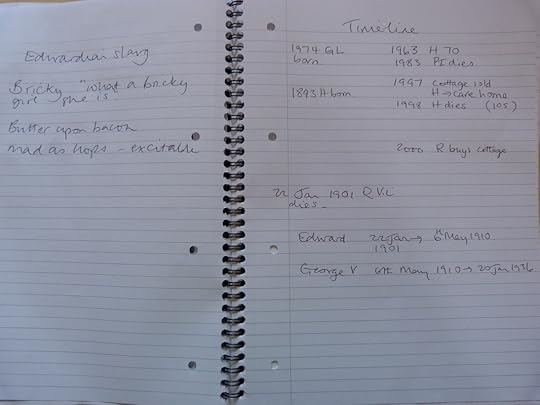 Edwardian slang
Bricky "what a bricky
girl she is.
Butter upon bacon
mad as hops - excitable
Timeline
1974 GL
born
1893 H born
1963 H 70
1983 PI dies
1997 cottage sold
H → care home
1998 H dies (105)
2000 R buys cottage
22 Jan 1901 Q Vic
dies -
Edward 22 Jan → 6th May 1910
1901
George V 6th May 1910 → 20 Jan 1936